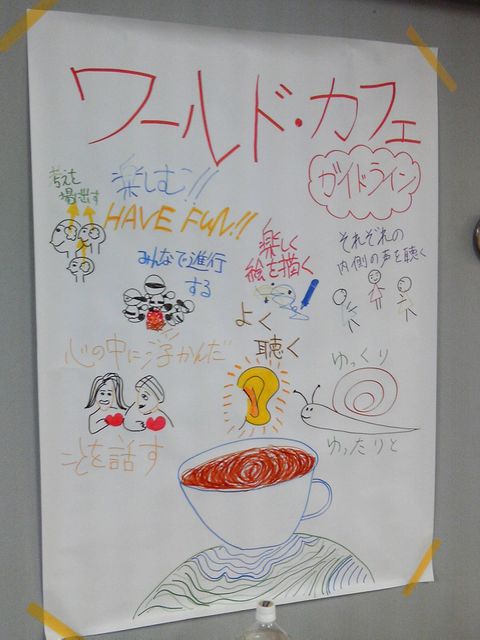 ワールド・カフェ
ガイドライン
考えを
場に出す
楽しむ!!
HAVE FUN!!
みんなで進行
する
楽しく
絵を描く
それぞれの
内側の声を聴く
よく
聴く
心の中に浮かんだ
ことを話す
ゆっくり
ゆったりと